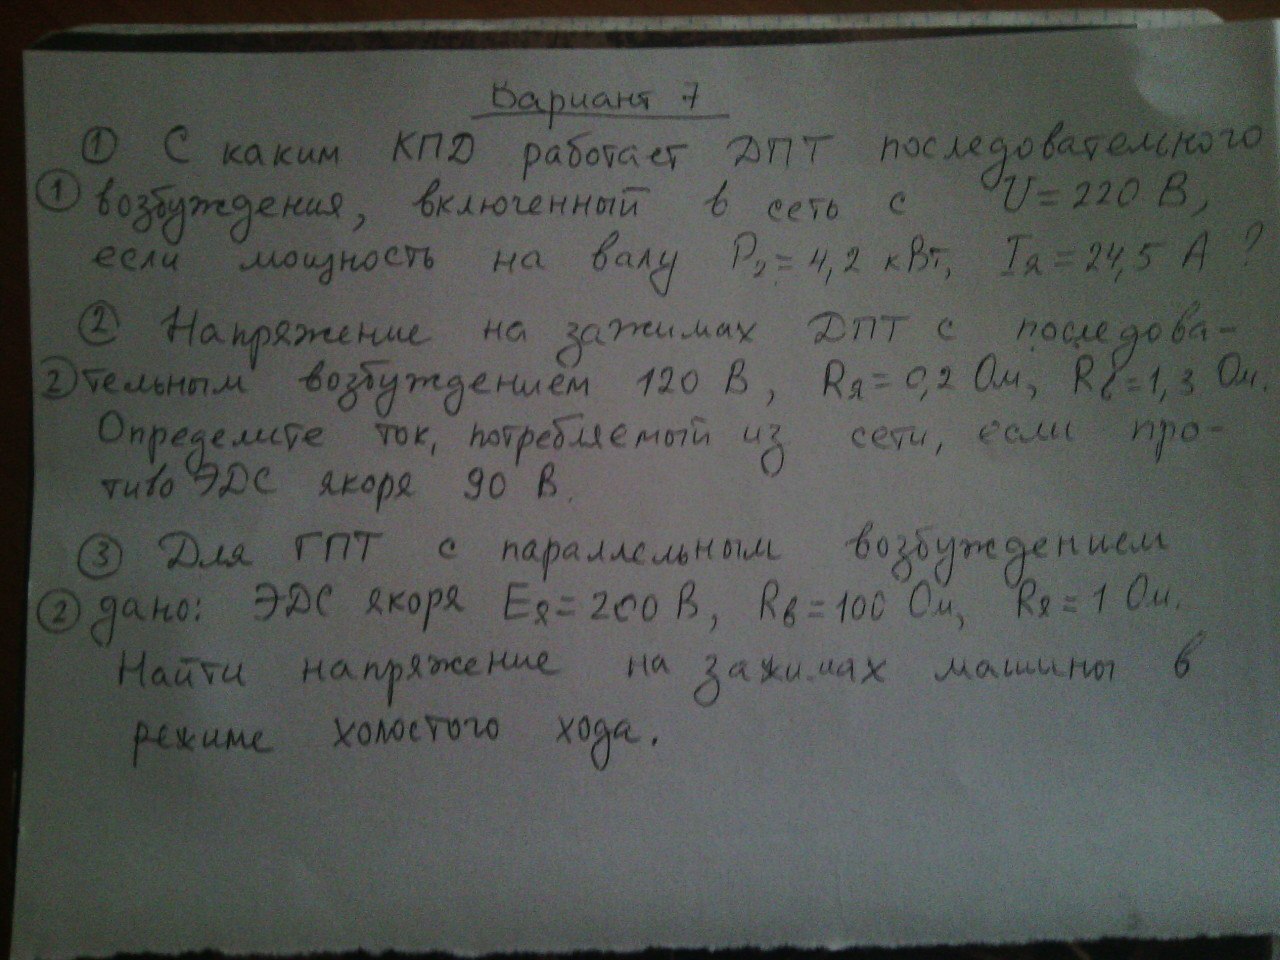 Вариант 7
① С каким КПД работает ДПТ последовательного
① возбуждения, включенный в сеть с U = 220 В,
если мощность на валу P₂ = 4,2 кВт, Iя = 24,5 А ?
② Напряжение на зажимах ДПТ с последова-
② тельным возбуждением 120 В, Rя = 0,2 Ом, Rв = 1,3 Ом.
Определите ток, потребляемый из сети, если про-
тиво ЭДС якоря 90 В.
③ Для ГПТ с параллельным возбуждением
② дано: ЭДС якоря Eя = 200 В, Rв = 100 Ом, Rя = 1 Ом.
Найти напряжение на зажимах машины в
режиме холостого хода.